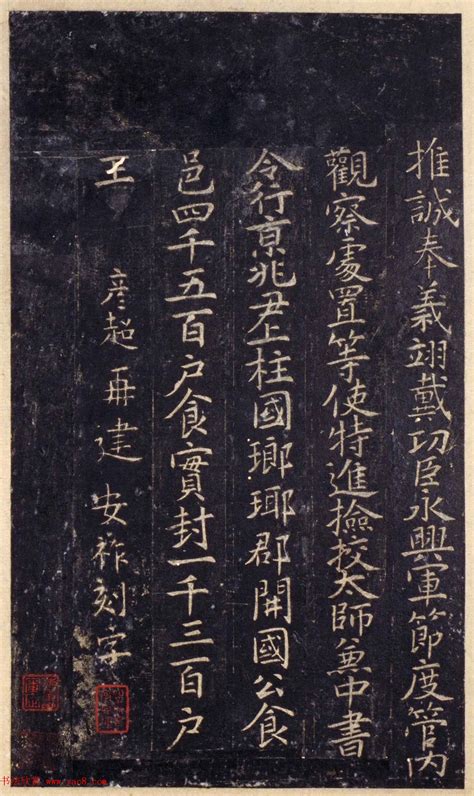 推誠奉義翊戴功臣永興軍節度管内
觀察處置等使特進撿挍太師兼中書
令行京兆尹上柱國瑯琊郡開國公食
邑四千五百戶食實封一千三百戶
王 彦超再建 安祚刻字
书法欣赏 www.yac8.com